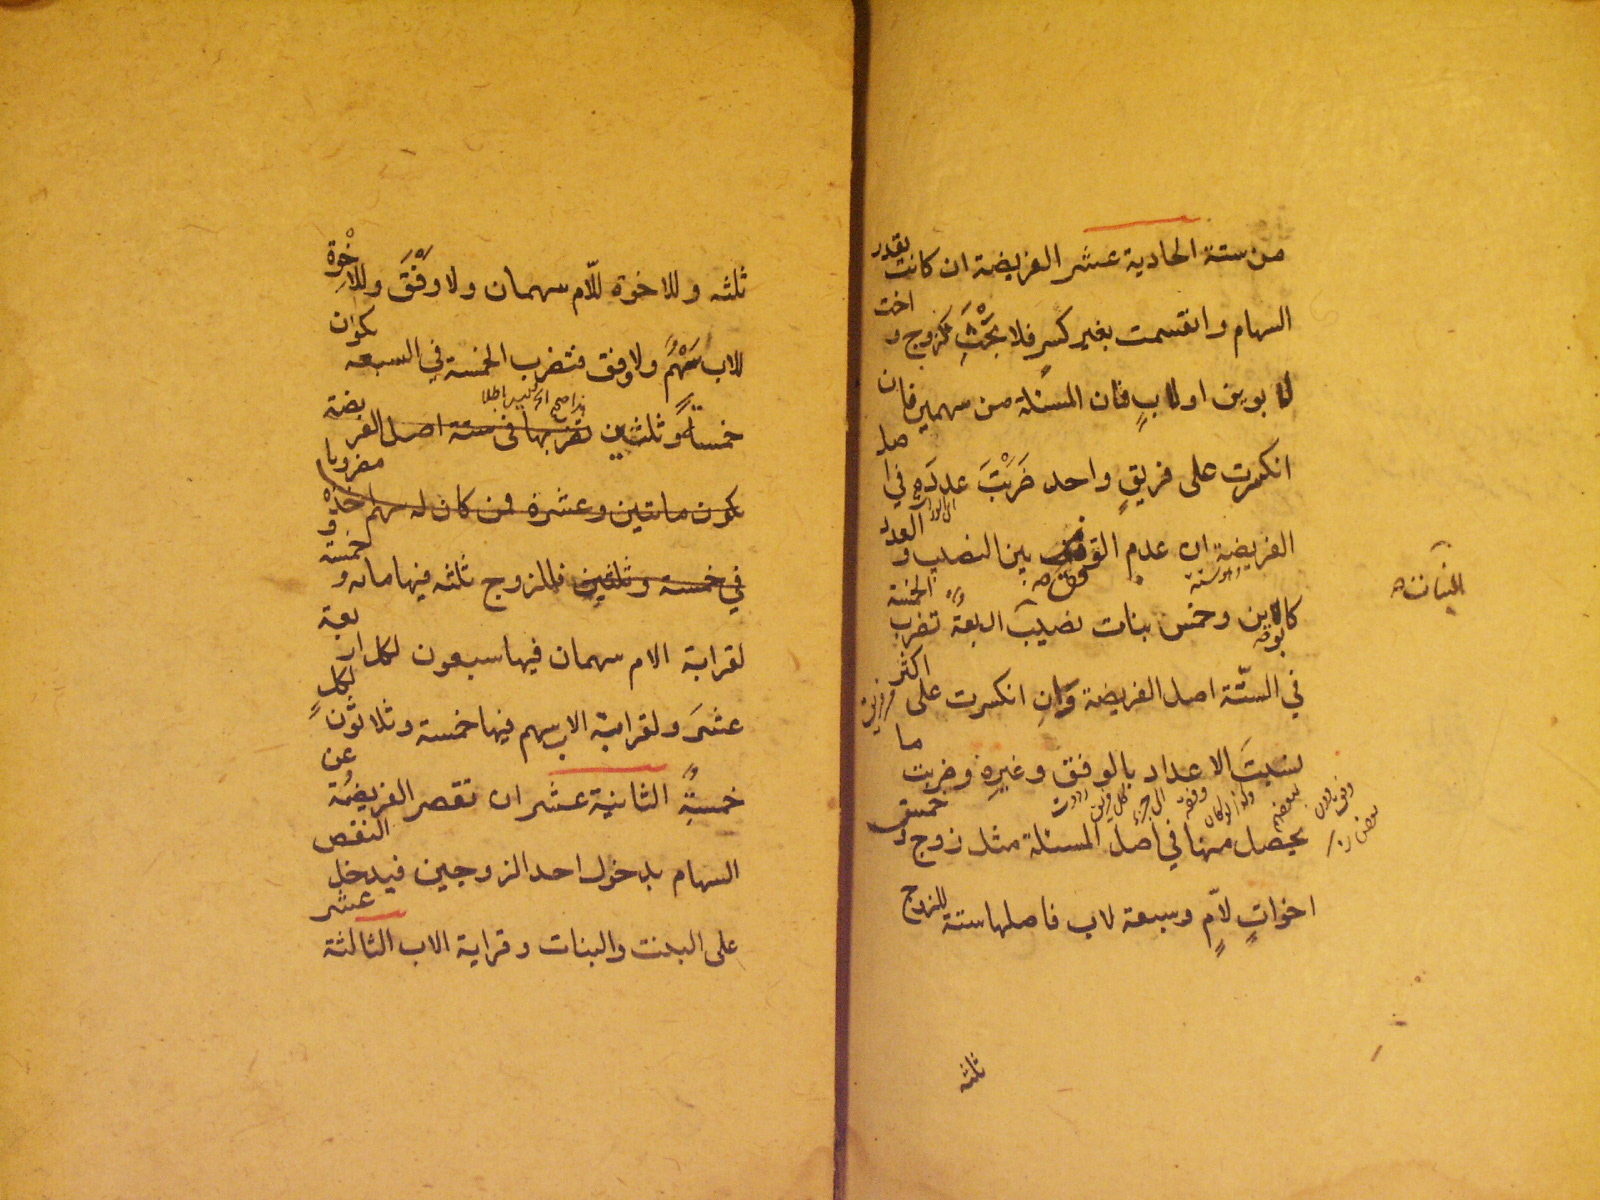 من ستة الحادية عشر الفريضة ان كانت بقدر
السهام وانقسمت بغير كسر فلا بحث كزوج و اخت
لابوين او لاب فان المسئلة من سهمين فان
انكسرت على فريق واحد ضربت عدده في اصل
الفريضة ان عدم الوفق بين النصيب و العدد
كابوين وخمس بنات نصيب اربعة تضرب الخمسة
في الستة اصل الفريضة وان انكسرت على اكثر
نسبت الاعداد بالوفق وغيره وضربت ما
يحصل منها في اصل المسئلة مثل زوج و خمسة
اخوات لام وسبعة لاب فاصلها ستة للزوج
ثلثه
البنات
ثلثه وللاخوة للام سهمان ولا وفق وللاخوة
للاب سهم ولا وفق فتضرب الخمسة في السبعه يكون
خمسة وثلثين تضربها في ستة اصل الفريضة
يكون مائتين وعشرة فمن كان له سهم اخذه مضروبا
في خمسة وثلثين فللزوج ثلثه فيها مائه و خمسة
لقرابة الام سهمان فيها سبعون لكل اربعة
عشر ولقرابة الاب سهم فيها خمسة وثلاثون لكل
خمسة الثانية عشر ان تقصر الفريضة عن
السهام بدخول احد الزوجين فيدخل النقص
على البنت والبنات وقرابة الاب الثالثة عشر